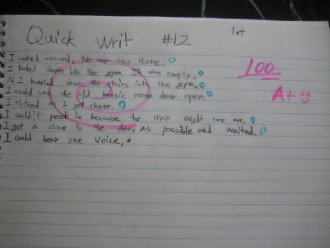 Quick Writ #12 1st
100
A+
I looked around, No one was there.
I looked down into the gym. It was empty,
As I hurried down the stairs into the gym,
I could see the old music room door open.
I I got closer.
I could't peak in because the man might see me.
I got a close to the door as possible and waited.
I could hear one voice,